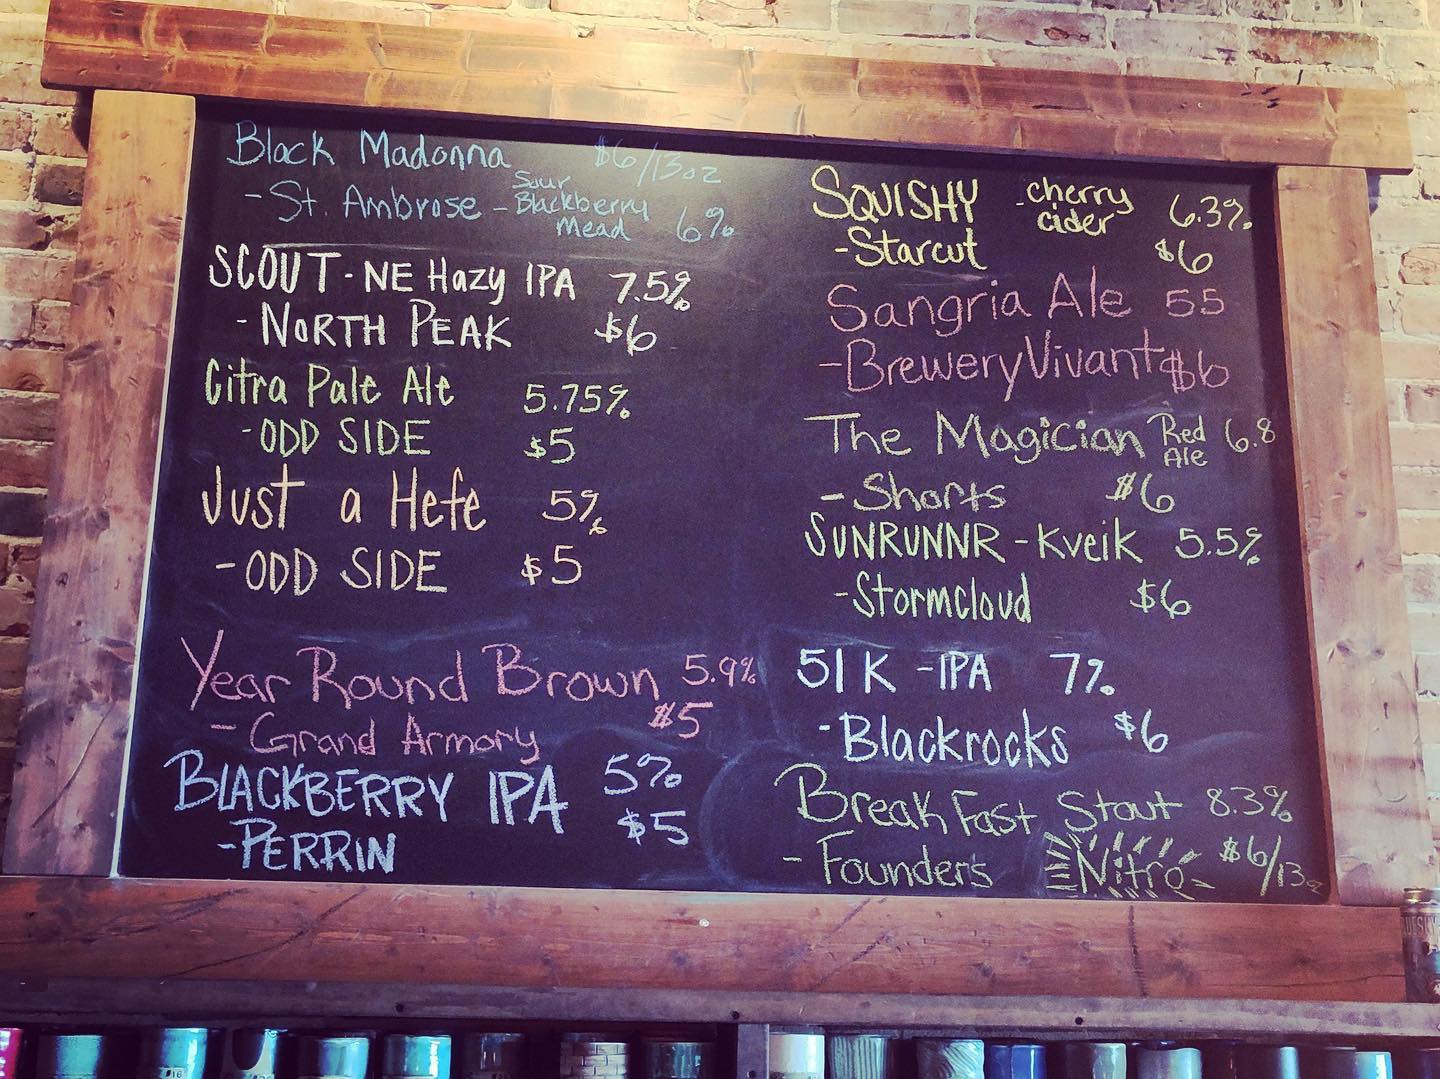 Black Madonna $6/13oz
- St. Ambrose - Sour Blackberry Mead 6%
SCOUT - NE Hazy IPA 7.5%
- NORTH PEAK $6
Citra Pale Ale 5.75%
- ODD SIDE $5
Just a Hefe 5%
- ODD SIDE $5
Year Round Brown 5.9%
- Grand Armory $5
BLACKBERRY IPA 5%
- PERRIN $5
SQUISHY - cherry cider 6.3%
- Starcut $6
Sangria Ale 55
- Brewery Vivant $6
The Magician Red Ale 6.8
- Shorts $6
SUNRUNNR - Kveik 5.5%
- Stormcloud $6
51 K - IPA 7%
- Blackrocks $6
BreakFast Stout 8.3%
- Founders Nitro $6/13oz